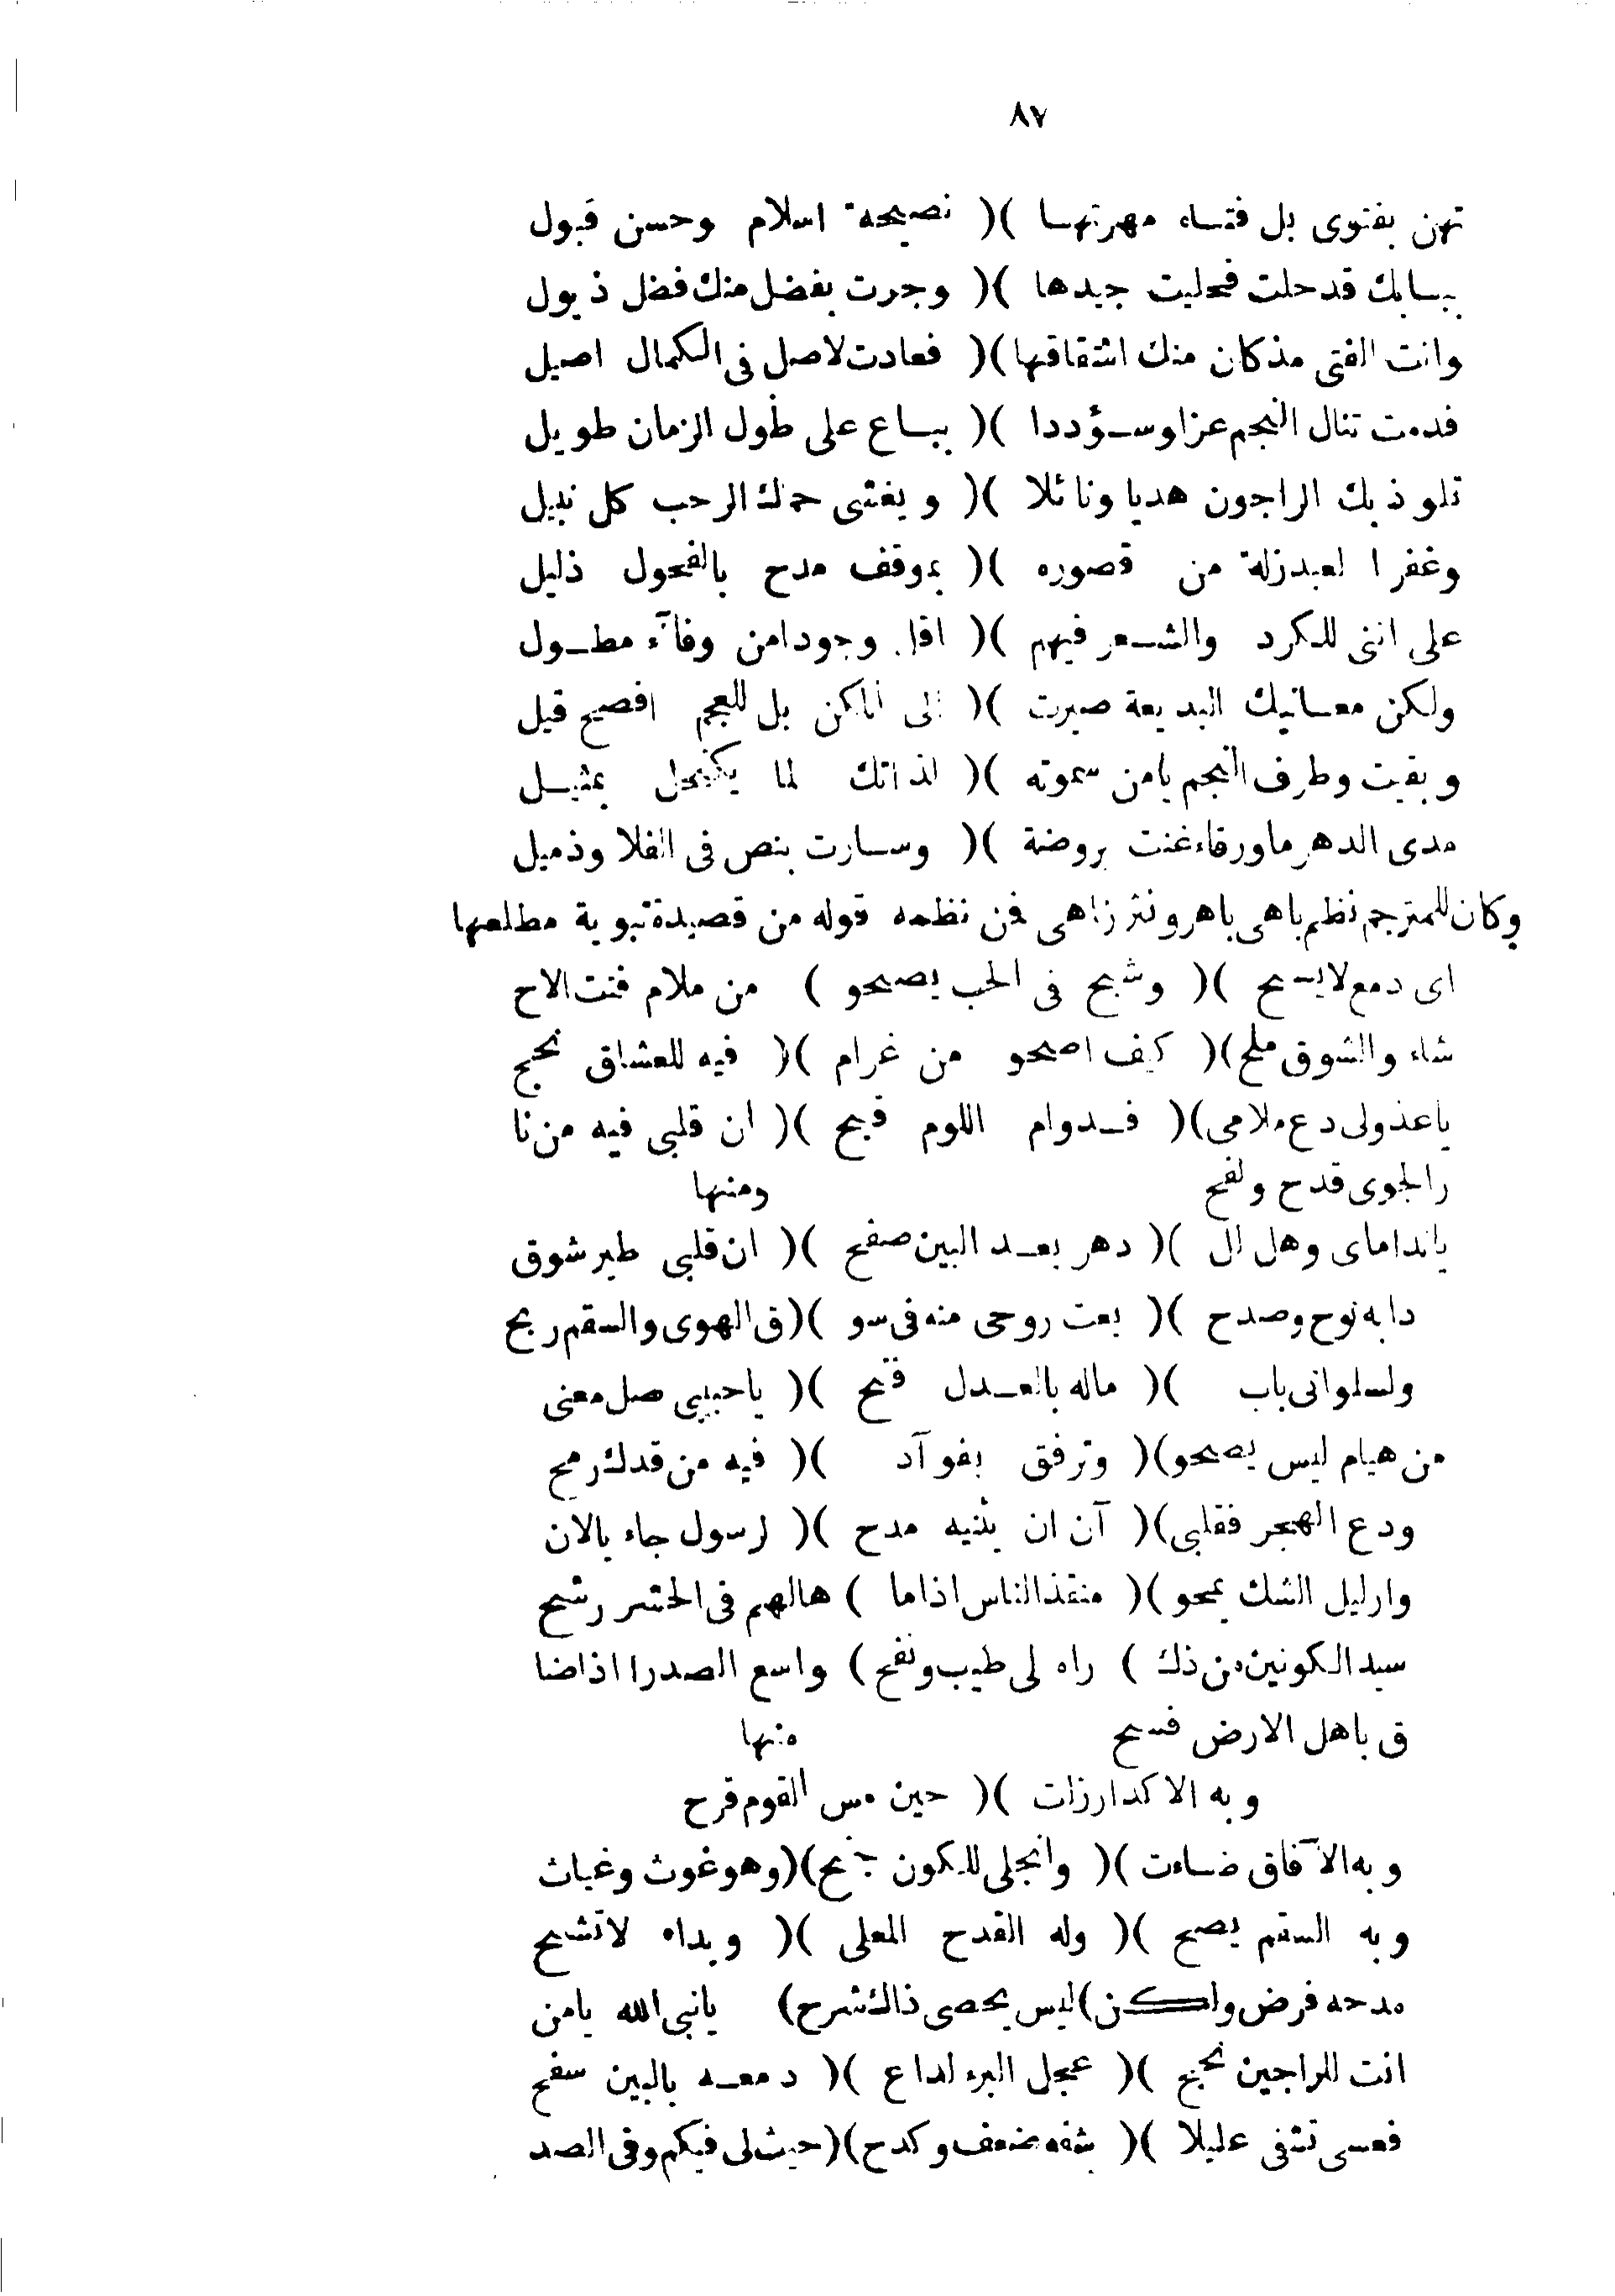 ٨٧
تهن بفتوى بل فتاه مهرتها )( نصيحة اسلام وحسن قبول
ببابك قد حلت فحليت جيدها )( وجرت بفضل منك فضل ذيول
وانت الفتى مذ كان منك اشتقاقها )( فعادت لاصل فى الكمال اصيل
فدمت تنال النجم عزا وسؤددا )( بباع على طول الزمان طويل
تلوذ بك الراجون هديا ونائلا )( ويغشى حماك الرحب كل نبيل
وغفرا لعبد زلة من قصوره )( بموقف مدح بالفحول ذليل
على اننى للكرد والشعر فيهم )( اقل وجودا من وفاء مطول
ولكن معانيك البديعة صيرت )( الى الكن بل للعجم افصح قيل
وبقيت وطرف النجم يا من سموته )( لذاتك لما يكتحل بمثيل
مدى الدهر ما ورقاء غنت بروضة )( وسارت بنص فى الفلا وذميل
وكان للمترجم نظم باهى باهر ونثر زاهى فمن نظمه قوله من قصيدة نبوية مطلعها
اى دمع لا يسح )( وشبح فى الحب يصحو ) من ملام فتت الاح
شاء والشوق ملح )( كيف اصحو من غرام )( فيه للعشاق نجح
يا عذولى دع ملامى )( فدوام اللوم قبح )( ان قلبى فيه من نا
ر الجوى قدح ولفح ومنها
يا نداماى وهل لل )( دهر بعد البين صفح )( ان قلبى طير شوق
دابه نوح وصدح )( بعت روحى منه فى سو )( ق الهوى والسقم ربح
ولسلوانى باب )( ماله بالعدل فتح )( يا حبيبى صل معنى
من هيام ليس يصحو )( وترفق بفوآد )( فيه من قدك رمح
ودع الهجر فقلبى )( آن ان يثنيه مدح )( لرسول جاء بالان
وار ليل الشك يمحو )( منقذ الناس اذا ما ) هالهم فى الحشر رشح
سيد الكونين من ذك ) راه لى طيب ونفح ) واسع الصدر اذا ضا
ق باهل الارض فسح منها
وبه الاكدار زالت )( حين مس القوم قرح
وبه الآفاق ضاءت )( وانجلى للكون جنح )( وهو غوث وغياث
وبه السقم يصح )( وله القدح المعلى )( ويداه لا تشح
مدحه فرض ولكن ) ليس يحصى ذاك شرح ) يا نبى الله يا من
انت للراجين نجح )( عجل البرء لداع )( دمعه بالبين سفح
فعسى تشفى عليلا )( شفه ضعف وكدح )( حيث لى فيكم وفى الصد